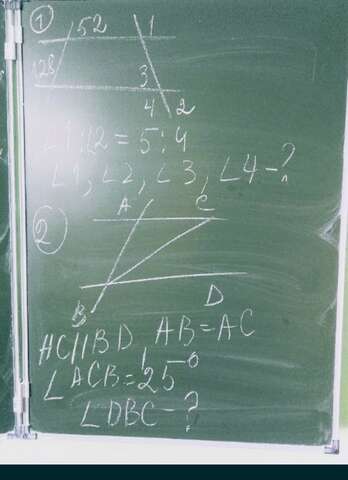 1 52 1
128 3
4 2
∠1:∠2 = 5:4
∠1, ∠2, ∠3, ∠4 - ?
2 A C
B D
AC||BD AB=AC
∠ACB=25°
∠DBC - ?